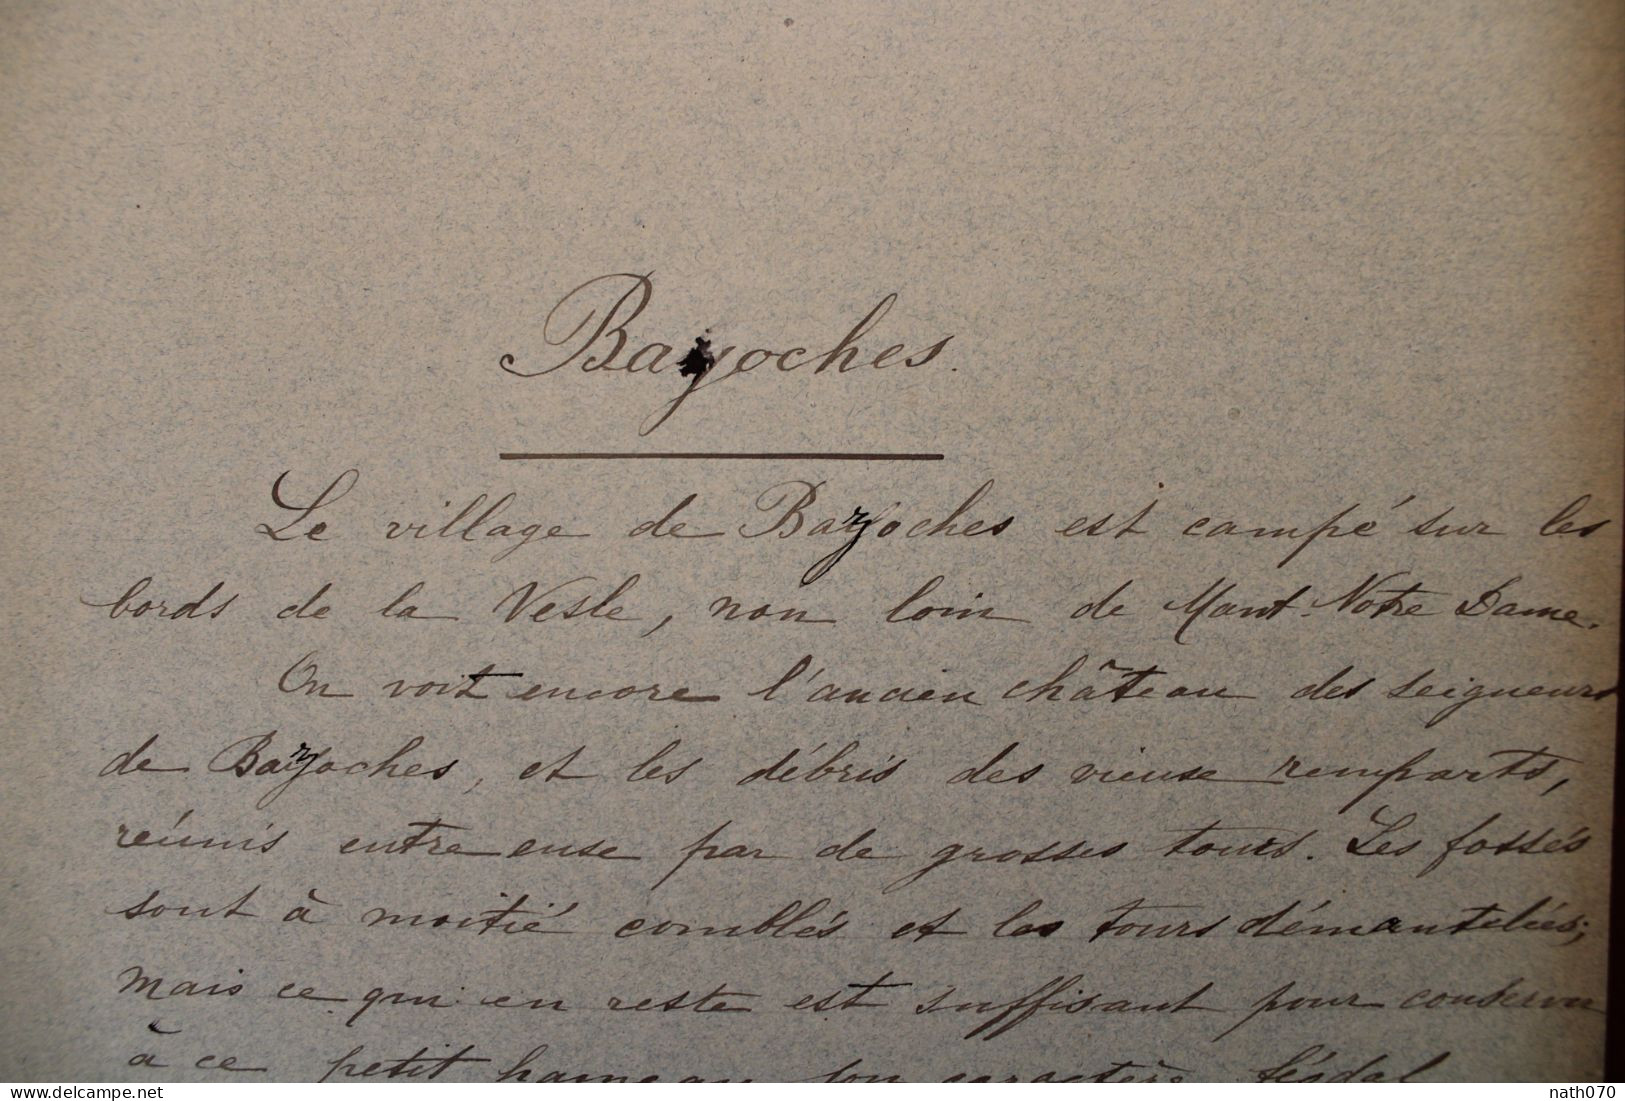 Bazoches.
Le village de Bazoches est campé sur les
bords de la Vesle, non loin de Mont-Notre Dame.
On voit encore l'ancien château des seigneurs
de Bazoches, et les débris des vieuse remparts,
réunis entre euse par de grosses tours. Les fossés
sont à moitié comblés et les tours démantelées;
mais ce qui en reste est suffisant pour conserver
à ce petit hameau son caractère féodal
www.delcampe.net
nath070